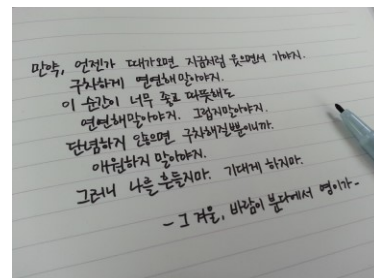 만약, 언젠가 때가오면 지금처럼 웃으면서 가야지.
구차하게 연연해말아야지.
이 순간이 너무 좋고 따뜻해도
연연해말아야지. 그럼지말아야지.
단념하지 않으면 구차해질뿐이니까.
애원하지 말아야지.
그러니 나를 흔들지마. 기대게 하지마.
- 그 겨울, 바람이 분다에서 영이가 -